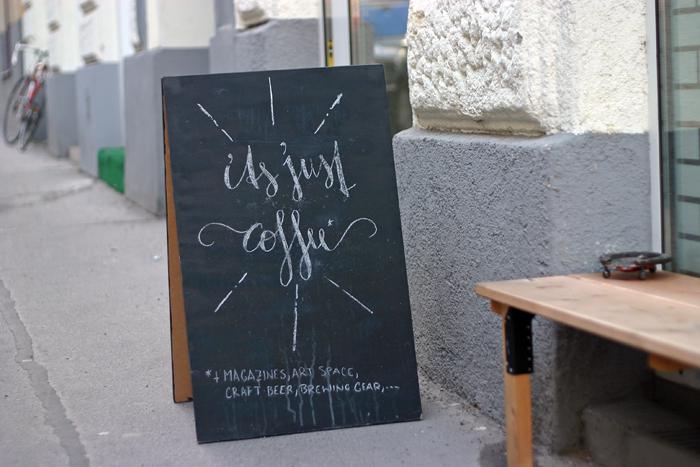 it's just
coffee*
*+ MAGAZINES, ART SPACE,
CRAFT BEER, BREWING GEAR,...